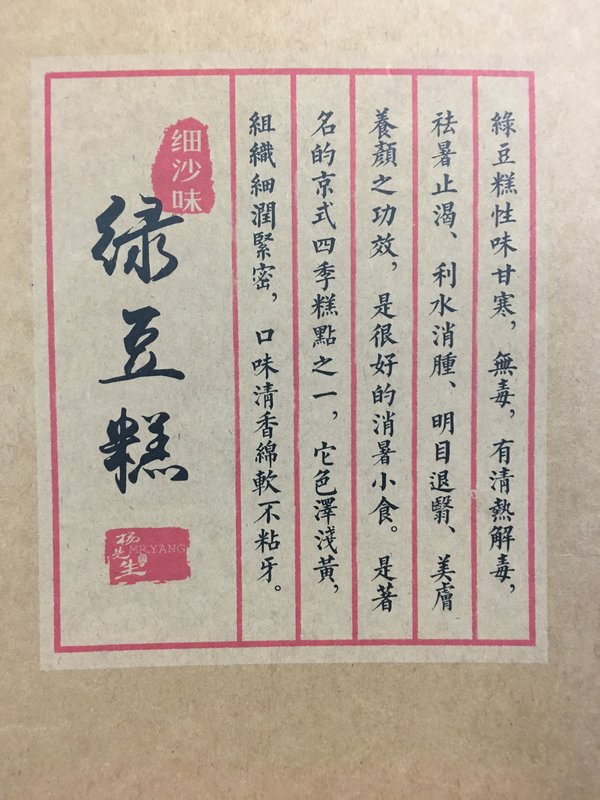 綠豆糕性味甘寒，無毒，有清熱解毒，
祛暑止渴、利水消腫、明目退翳、美膚
養顏之功效，是很好的消暑小食。是著
名的京式四季糕點之一，它色澤淺黃，
組織細潤緊密，口味清香綿軟不粘牙。
细沙味
绿豆糕
杨先生
MR.YANG